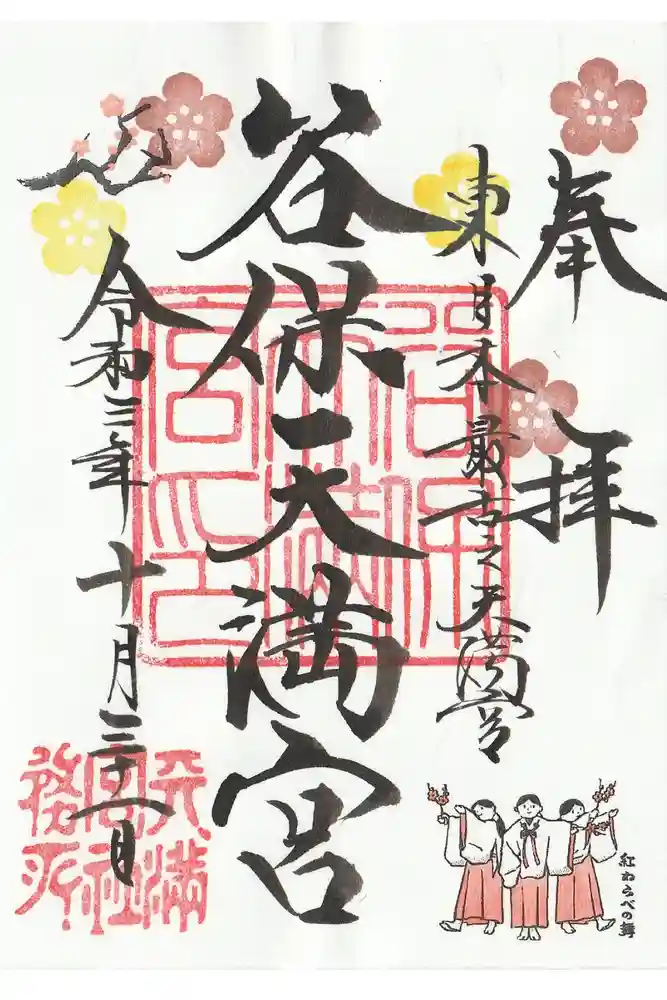 奉拝
東日本最古之天満宮
谷保天満宮
令和三年十月三十一日
谷保
天満
宮印
天満
宮社
務所
紅わらべの舞